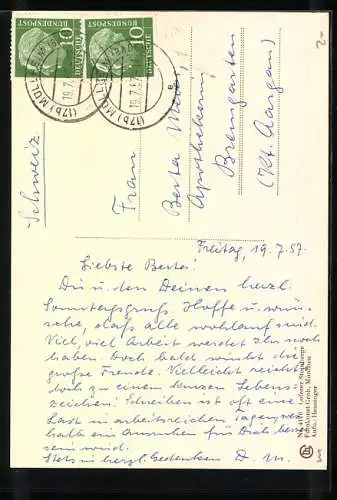 10 DEUTSCHE BUNDESPOST
10 DEUTSCHE BUNDESPOST
(17b) MÜLL
19.7.57
(17b) MÜLL
19.7.57
2-
Schweiz
Frau
Berta Meier
Apothekerin
Bremgarten
(Kt. Aargau)
Freitag, 19.7.57
Liebste Berta!
Dir u. den Deinen herzl.
Sonntagsgruß. Hoffe u. wün-
sche, daß alle wohlauf sind.
Viel, viel Arbeit werdet Ihr noch
haben. Doch bald winkt die
große Freude. Vielleicht reicht
doch zu einem kurzen Lebens-
zeichen! Schreiben ist oft eine
Last in arbeitsreichen Tagen,
ein Ausruhen für Dich
sein wird.
Stets in herzl. Gedenken D. M.